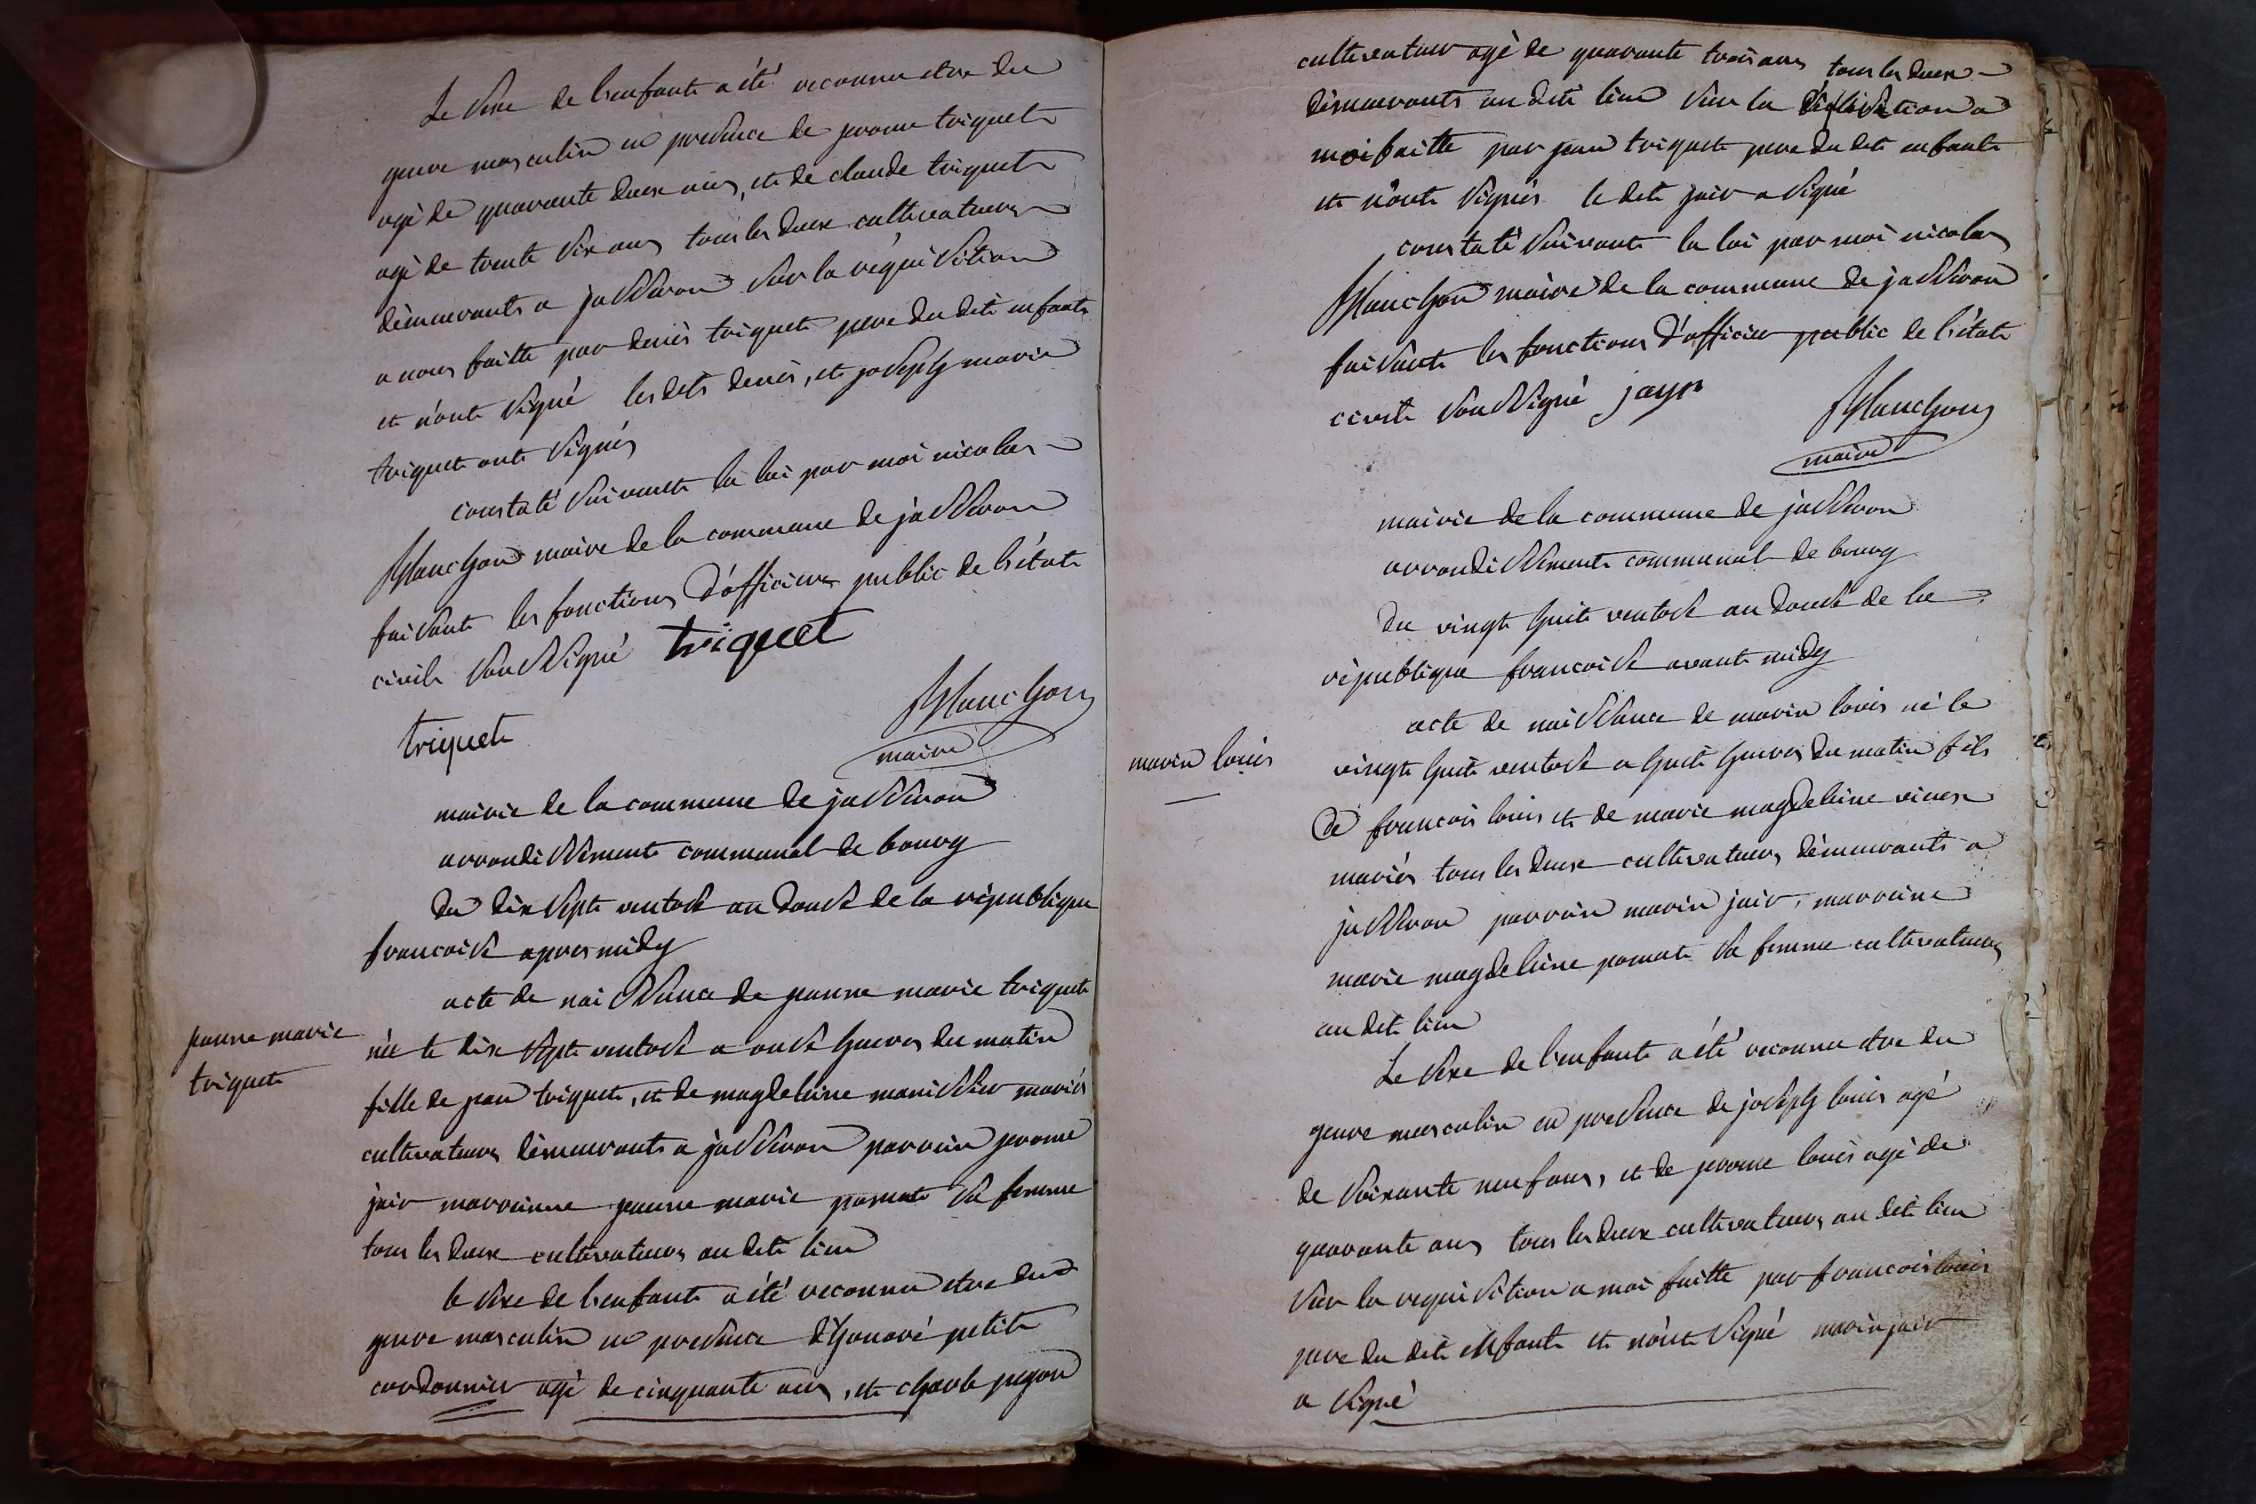 Le sexe de l'enfant a été reconnu etre du
genre masculin en presence de jerome triquet
agé de quarante deux ans, et de claude triquet
agé de trente six ans tous les deux cultivateurs
démeurants a jasseron sur la réquisition
a nous faitte par denis triquet pere du dit enfant
et n'ont signé les dits denis, et joseph marie
triquet ont signés
constaté suivant la loi par moi nicolas
Planchon maire de la commune de jasseron
faisant les fonctions d'officier public de l'état
civil soussigné triquet
Planchon
triquet
maire
mairie de la commune de jasseron
arrondissement communal de bourg
du dix sept ventose an douse de la république
francoise apres midy
acte de naissance de jeanne marie triquet
jeanne marie
triquet
née le dix sept ventose a onse heures du matin
fille de jean triquet, et de magdeleine manissier mariés
cultivateurs démeurants a jasseron parrain jerome
jair marrainne jeanne marie pomat sa femme
tous les deux cultivateurs au dit lieu
le sexe de l'enfant a été reconnu etre du
genre masculin en presence d'honoré petit
cordonnier agé de cinquante ans, et charle pegon
cultivateur agé de quarante trois ans tous les deux
démeurants au dit lieu sur la réquisition a
moi faitte par jean triquet pere du dit enfant
et n'ont signés le dit jair a signé
constaté suivant la loi par moi nicolas
Planchon maire de la commune de jasseron
faisant les fonctions d'officier public de l'état
civil soussigné jayr
Planchon
maire
mairie de la commune de jasseron
arrondissement communal de bourg
du vingt huit ventose an douse de la
république francoise avant midy
acte de naissance de marin louis né le
marin louis
vingt huit ventose a huit heures du matin fils
de francois louis et de marie magdeleine
mariés tous les deux cultivateurs démeurants a
jasseron parrain marin jair, marraine
marie magdeleine pomat sa femme cultivateurs
au dit lieu
Le sexe de l'enfant a été reconnu etre du
genre masculin en presence de joseph louis agé
de soixante neuf ans, et de jerome louis agé de
quarante ans tous les deux cultivateurs au dit lieu
sur la requisition a moi faitte par francois louis
pere du dit enfant et n'ont signé marin jair
a signé